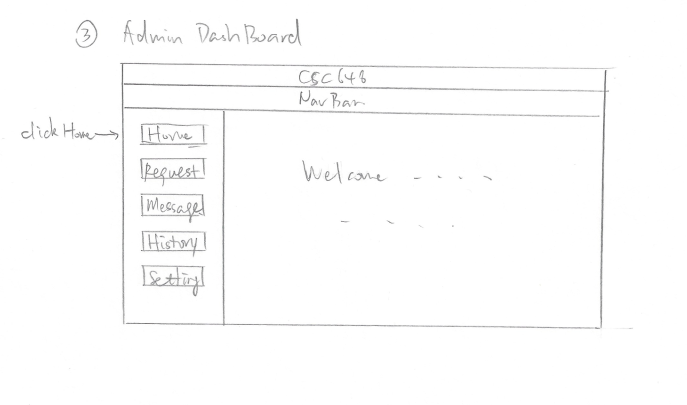 ③ Admin DashBoard
CSC648
NavBar
click Home → Home
Request
Welcome - - - -
Message
- - - -
History
Setting